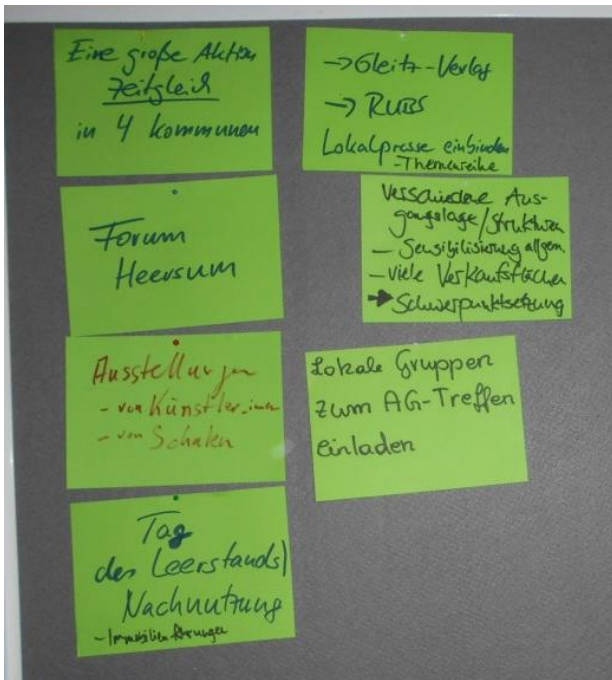 Eine große Aktion
zeitgleich
in 4 Kommunen
Forum
Heersum
Ausstellungen
- von Künstler_innen
- von Schulen
Tag
des Leerstands/
Nachnutzung
- Immobilienführungen
-> Gleitz-Verlag
-> RUBS
Lokalpresse einbinden
- Themenreihe
Verschiedene Aus-
gangslage/Strukturen
- Sensibilisierung allgem.
- viele Verkaufsflächen
➔ Schwerpunktsetzung
Lokale Gruppen
zum AG-Treffen
einladen